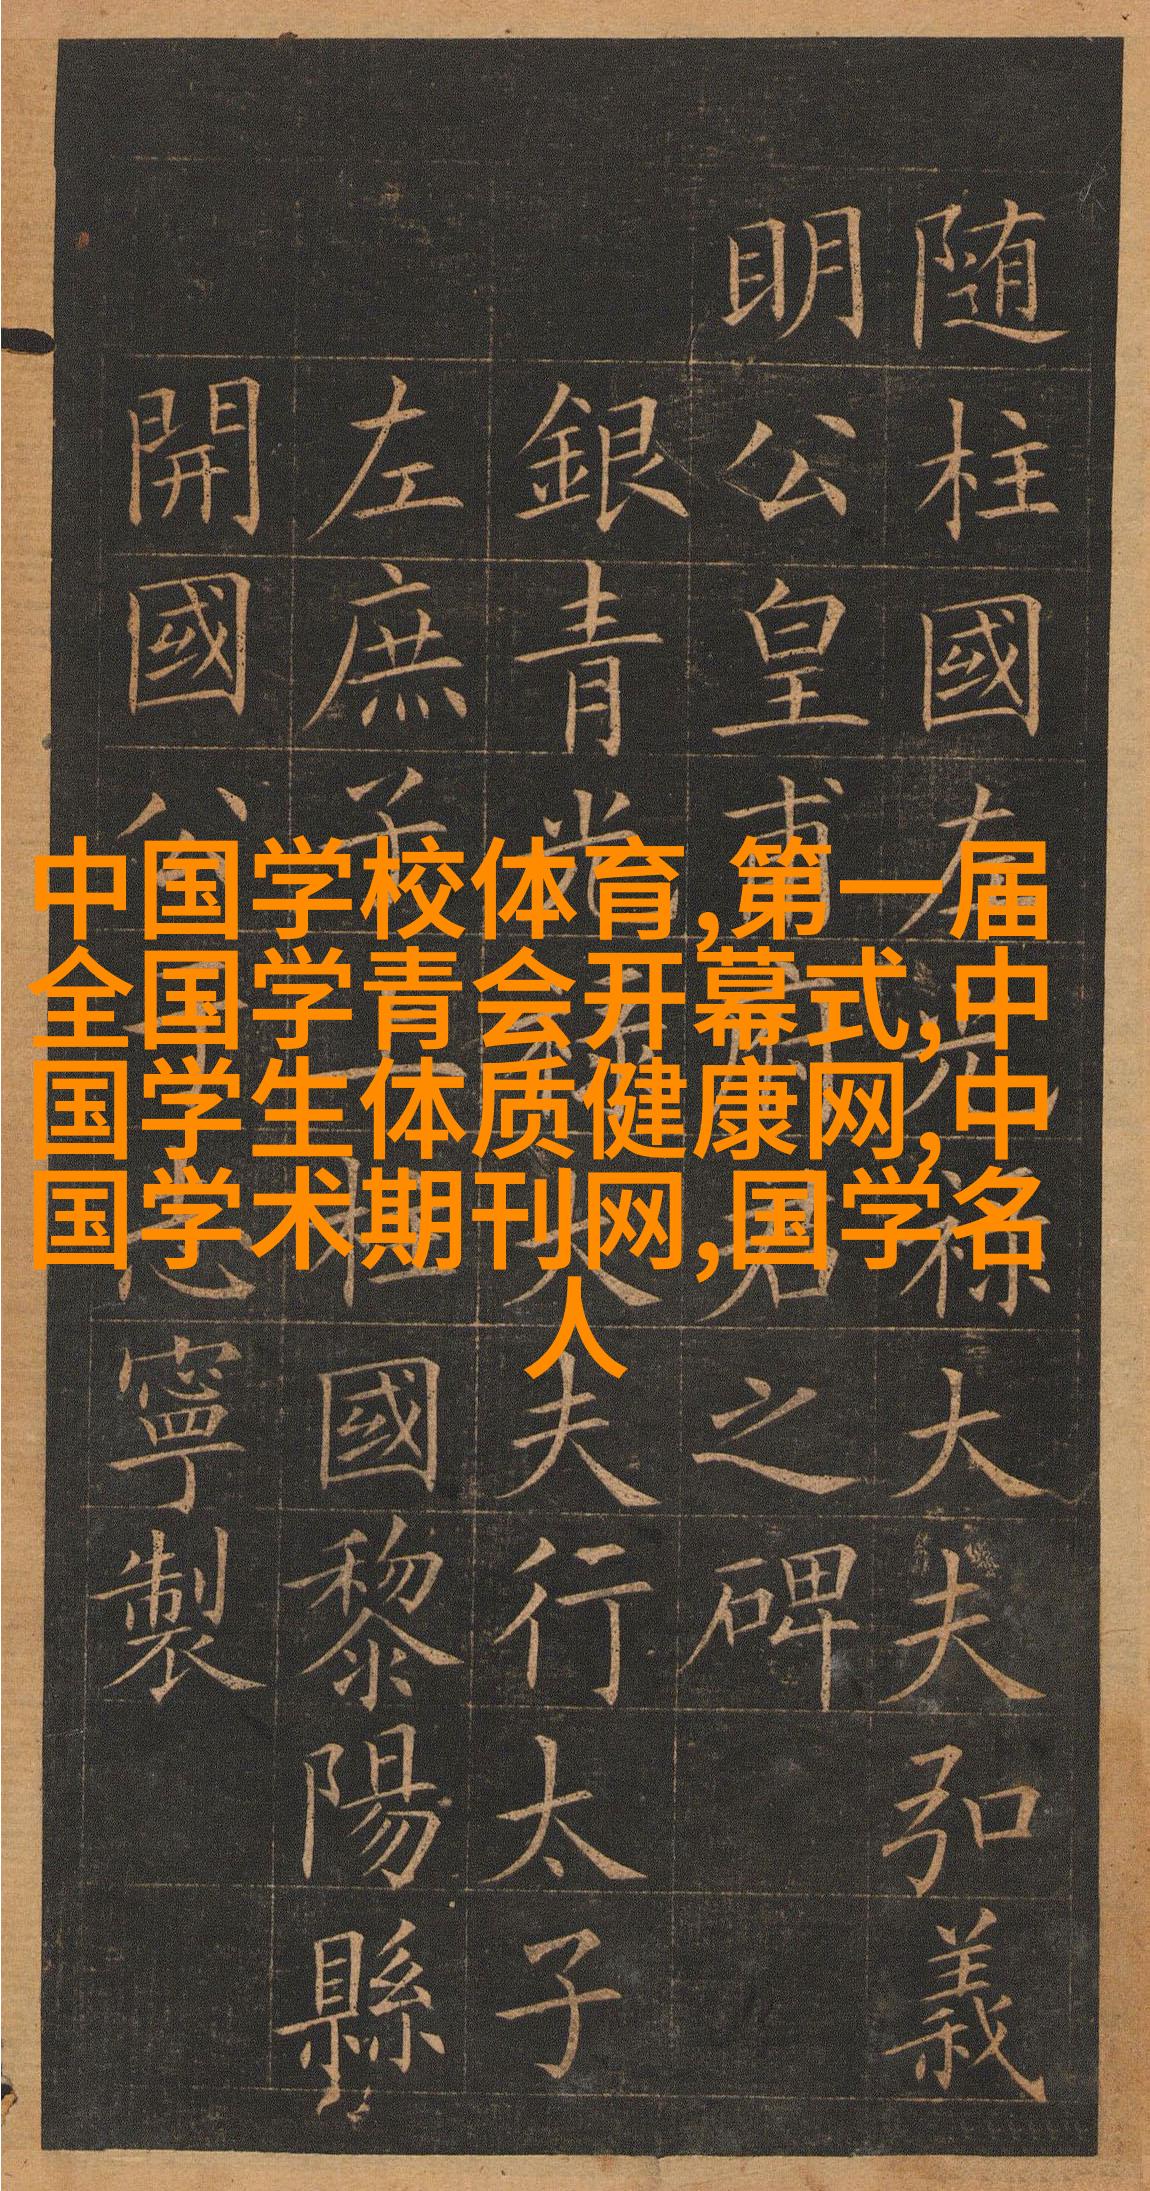 随柱國左光禄大夫弘義
明公皇甫府君之碑
銀青光禄大夫行太子
左庶子上柱國黎陽縣
開國公于志寧製
中国学校体育,第一届
全国学青会开幕式,中
国学生体质健康网,中
国学术期刊网,国学名
人